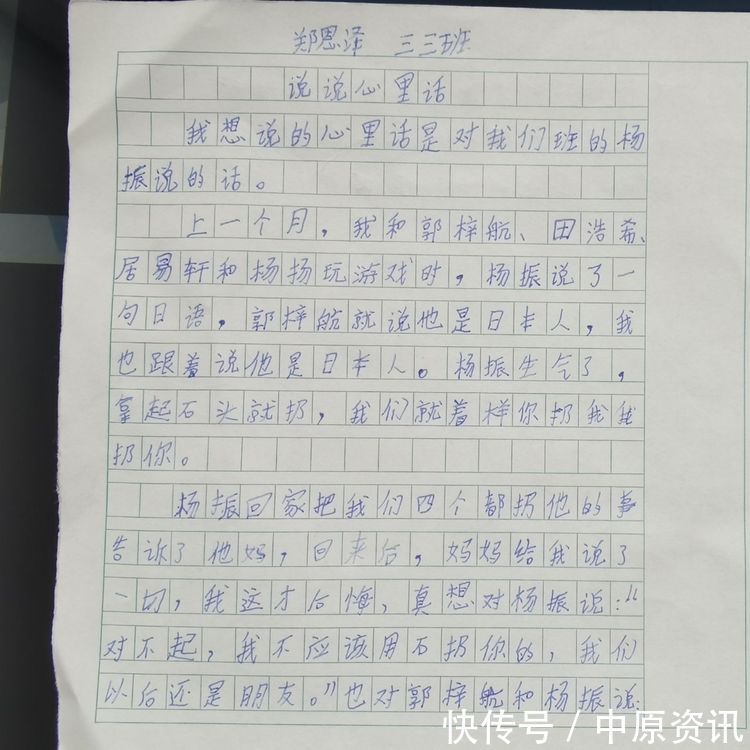 郑恩泽 三三班
说说心里话
我想说的心里话是对我们班的杨
振说的话。
上一个月，我和郭梓航、田浩希、
居易轩和杨扬玩游戏时，杨振说了一
句日语，郭梓航就说他是日本人，我
也跟着说他是日本人。杨振生气了，
拿起石头就扔，我们就着样你扔我我
扔你。
杨振回家把我们四个都扔他的事
告诉了他妈，回来后，妈妈给我说了
一切，我这才后悔，真想对杨振说：“
对不起，我不应该用石扔你的，我们
以后还是朋友。”也对郭梓航和杨振说：
快传号 / 中原资讯